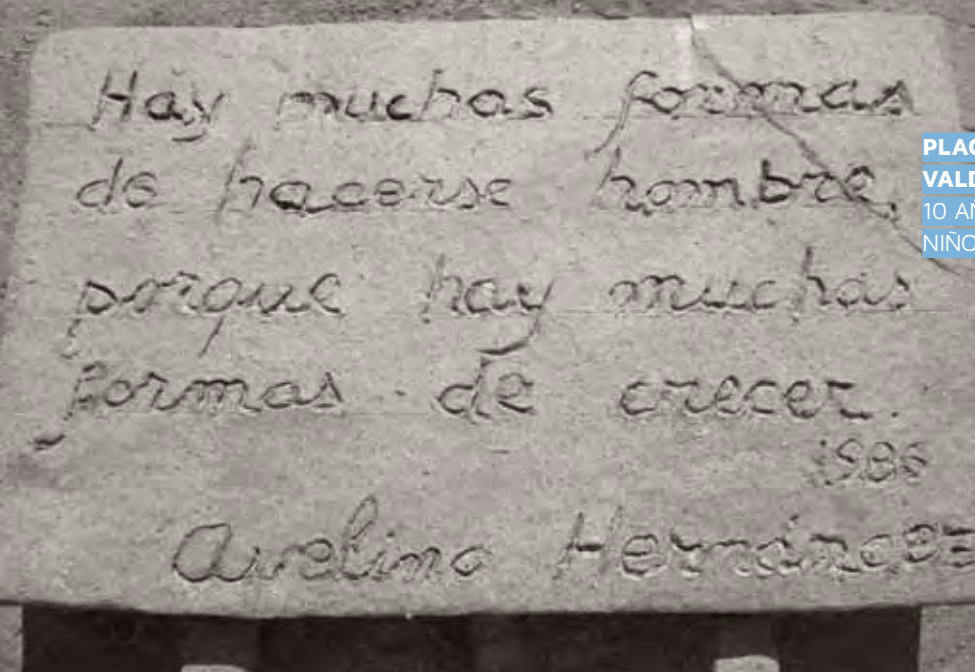 Hay muchas formas
de hacerse hombre,
porque hay muchas
formas de crecer.
1986
Avelino Hernández
PLAC
VALD
10 AÑ
NIÑO